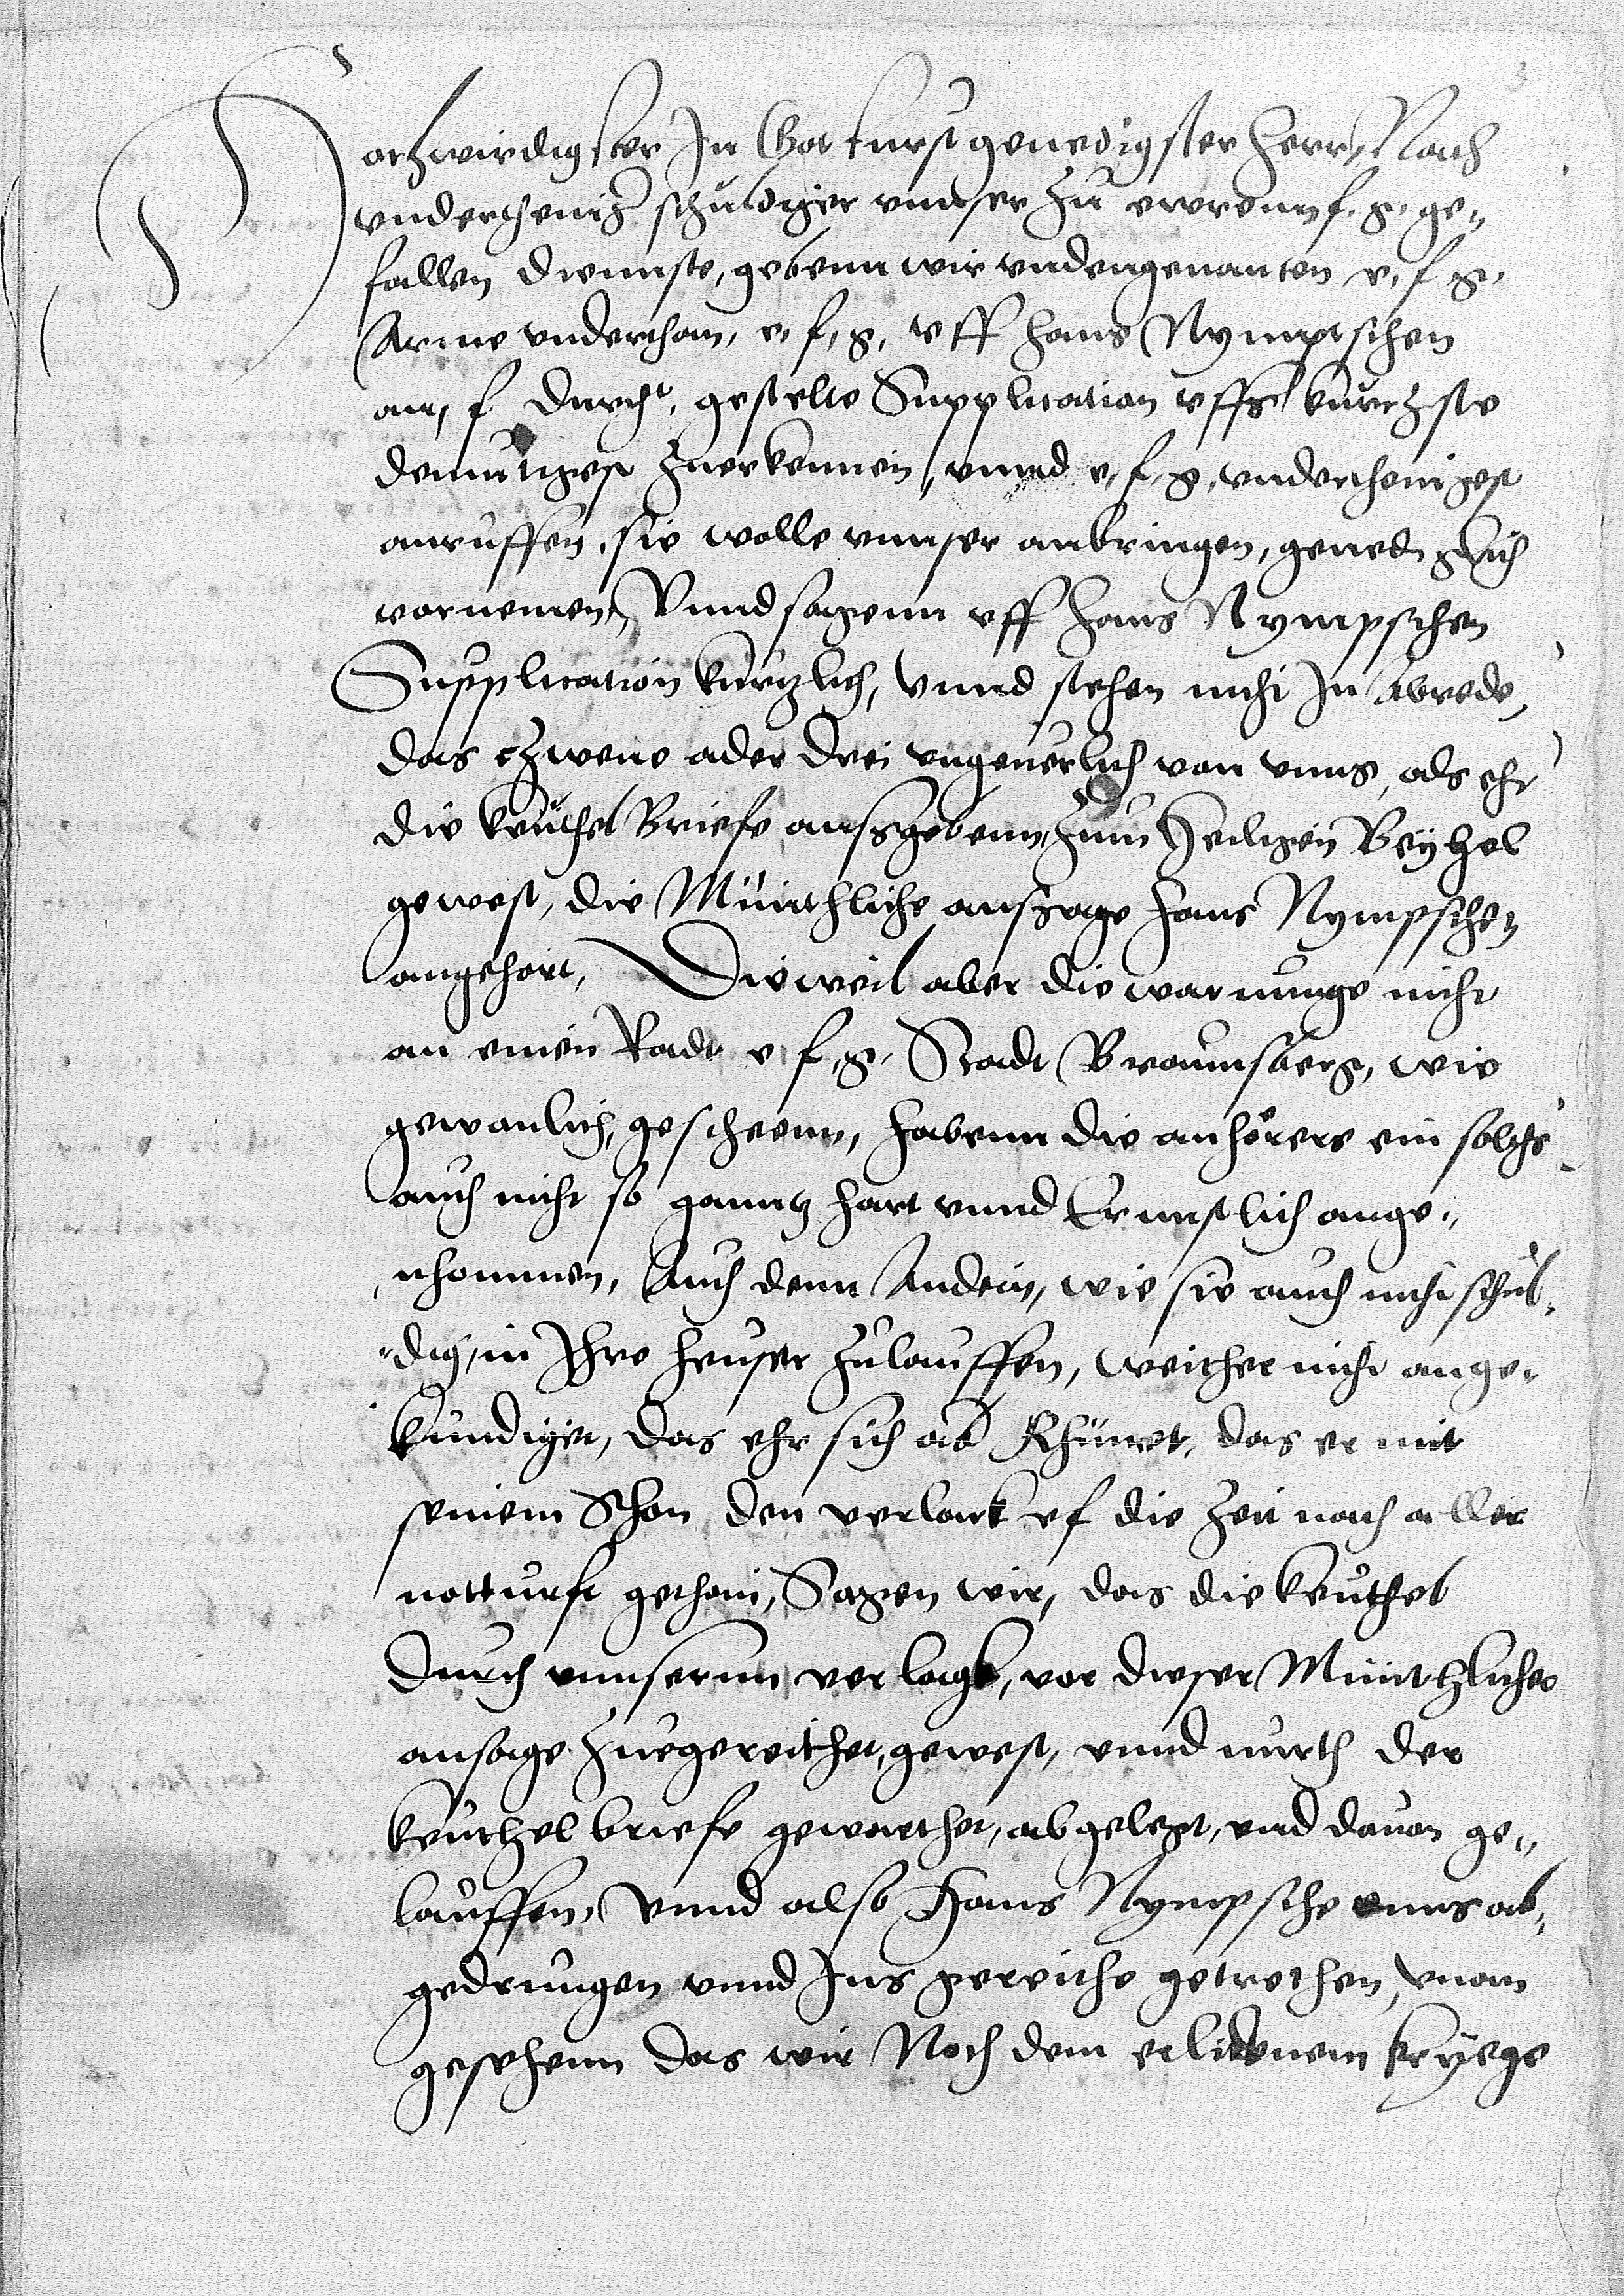 Hochwirdigster In Got furst genedigster herr, Nach
vndertheniger schuldiger vnnser zu ewrenn f. g. ge„
fallen diennste, gebenn wir vndengenanten e. f. g.
Arme vnderthan, e. f. g. vff hans Nymptschen
an, f. Durcht. gestelte Supplication vffs kurtzste
demutigest zuerkennen, vnnd e. f. g. vnderthenigest
anruffen, sie wolle vnnser anbringen, genediglich
vornemen, Vnnd sagenn vff hans Nympschen
Supplication kurtzlich, Vnnd stehen nicht In Abrede,
das czwene ader drei vngeuerlich von vnns, als ehr
die keuthel Briefe aussgebenn, zum Heiligen Beyhel
gewest, die Münthliche anssage hans Nympschen
angehort, Dieweil aber die warnunge nicht
an einen Radt e. f. g. Stadt Braunsberg, wie
gewonlich, gescheenn, habenn die anhörere ein solchs
auch nicht so ganntz hart vnnd Ernnstlich ange„
nhommen, Auch denn Andern, wie sie auch nicht schul„
dig, in Ihre heuser zulauffen, weither nicht ange„
kundiget, das ehr sich ab Rhümet, das er mit
seinem Shon den verlack vf die Zeit nach aller
notturft gethan, Sagen wir, das die keuthel
durch vnnserun verlagk, vor dieser Münthlicher
ansage zuegereithet, gewest, vnnd nurth der
keuthel briefe gewarthet, abgelegt, vnd dauon ge„
lauffen, Vnnd also Hans Nympsche vnns ab„
gedrungen vnnd Ins gereithe getrethen, vnan
gesehenn das wir Noch dem erlidenem kryege